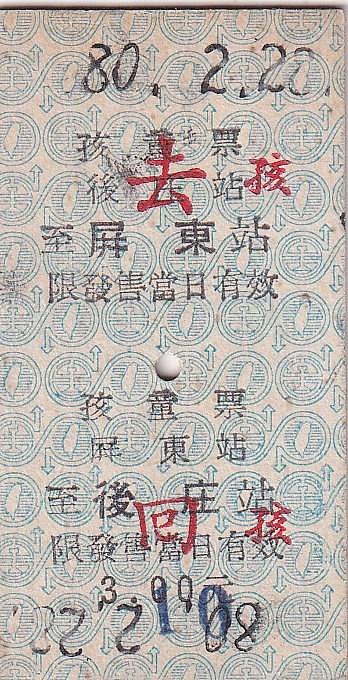 80. 2. 20.
孩童票
後庄站
去 孩
至屏東站
限發售當日有效
孩童票
屏東站
至後庄站
回 孩
限發售當日有效
3.00元
10